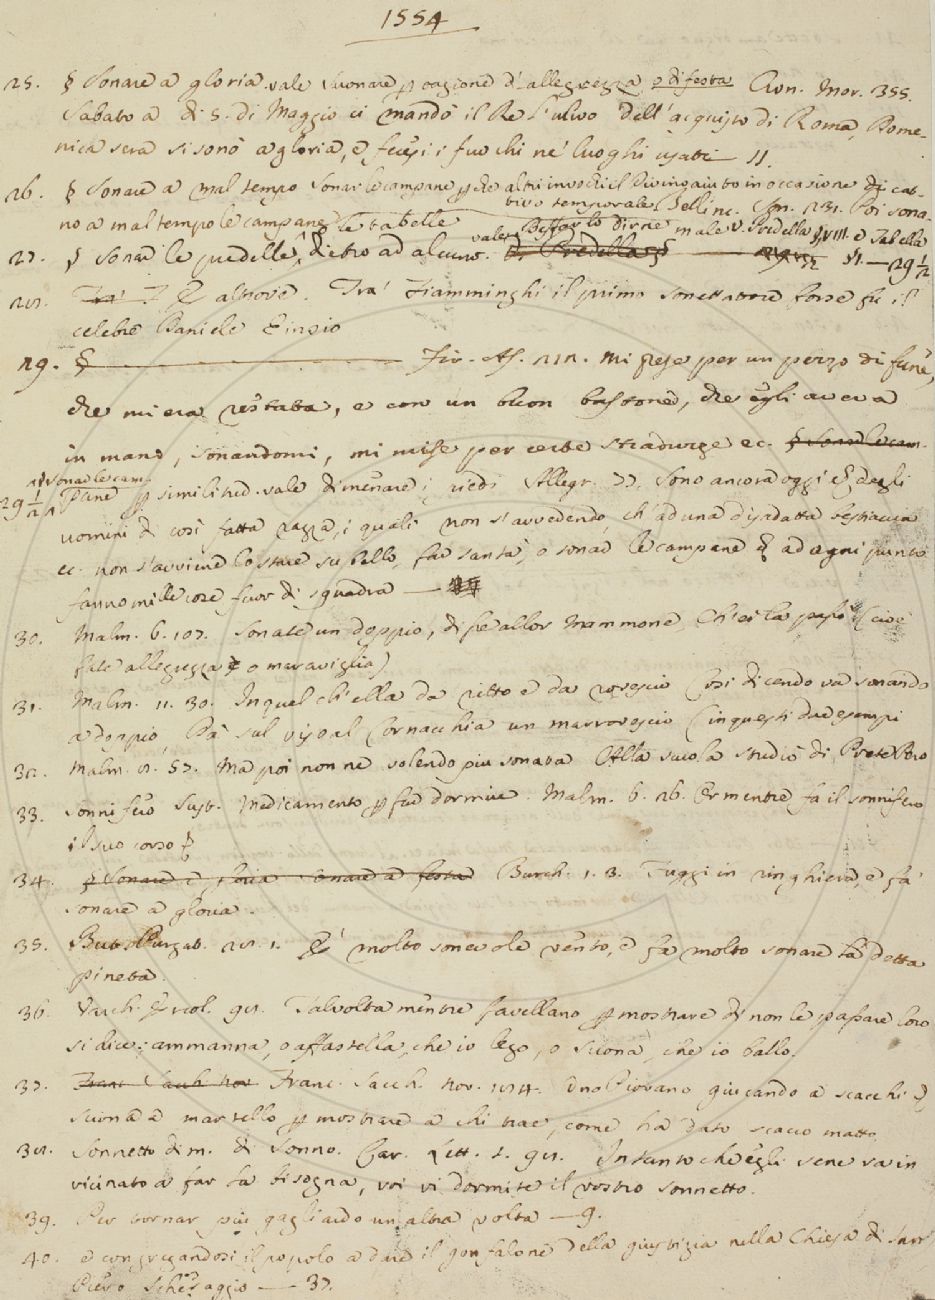 1554
25. § Sonare a gloria vale suonare p cagione d'allegrezza o di festa Cron. Mor. 355.
Sabato a dì 5. di Maggio ci mandò il Re l'ulivo dell'acquisto di Roma, Dome-
nica sera si sonò a gloria, e fecesi i fuochi ne' luoghi usati — 11.
26. § Sonare a mal tempo Sonar le campane p che altri invochi il Divino aiuto in occasione di cat-
tivo temporale. Bellinc. Son. 231. Poi sona-
no a mal tempo le campane
27. § Sonar le predelle, le tabelle dietro ad alcuno. vale Beffar lo dirne male v. Predella § VIII. e Tabella
§1. — 29 1/2
28. E altrove. Tra' Fiamminghi il primo sonettatore forse fu il
celebre Daniele Einsio
29. § — Fir. As. 212. Mi prese per un pezzo di fune,
che mi era restata, e con un buon bastone, che egli aveva
in mano, sonandomi, mi mise per certe straduzze ec. § Sonar le cam-
29 1/2 § Sonar le cam-
pane p similitud. vale dimenare i piedi Allegr. 77. Sono ancora oggi degli
uomini di così fatta razza, i quali non s'avvedendo, ch'ad una disadatta bestiaccia
ec. non s'avviene lo stare su bello, far santà, o sonar le campane ad ogni punto
fanno mille cose fuor di squadra —
30. Malm. 6. 107. Sonate un doppio, disse allor Mammone, Ch'ei la passò (cioè
fate allegrezza o maraviglia)
31. Malm. 11. 30. In quel ch'ella da ritto e da rovescio Così dicendo va sonando
a doppio, Dà sul viso al Cornacchia un marrovescio (in questi due esempi
32. Malm. 2. 57. Ma poi non ne volendo più sonata Alla scuola studiò di Prete Pero
33. Sonnifero Sust. Medicamento p far dormire. Malm. 6. 26. Or mentre fa il sonnifero
il suo corso §
34. § Sonare a gloria sonare a festa Burch. 1. 3. Fuggi in ringhiera, e fa
sonare a gloria.
35. But. Purgat. 28. 1. E' molto sonevole vento, e fa molto sonare la detta
pineta.
36. Varch. Ercol. 92. Talvolta mentre favellano p mostrare di non le passare loro
si dice: ammanna, o affastella, che io lego, o suona, che io ballo.
37. Franc. Sacch. Nov. Franc. Sacch. nov. 184. Uno Piovano giucando a scacchi
suona a martello p mostrare a chi trae, come ha dato scacco matto.
38. Sonnetto dim. di Sonno. Car. Lett. 1. 92. Intanto che egli sene va in
vicinato a far la bisogna, voi vi dormite il vostro sonnetto.
39. Per tornar più gagliardo un'altra volta — 9.
40. e congregandosi il popolo a dare il gonfalone della giustizia nella Chiesa di San
Piero Scheraggio — 37.